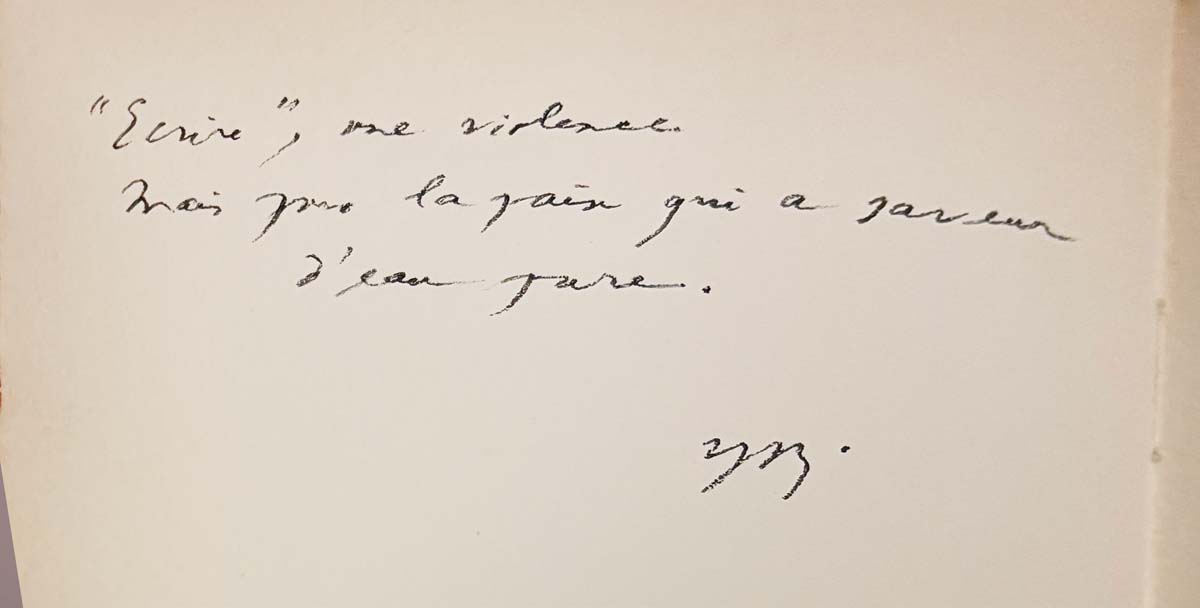 "Ecrire", une violence.
Mais pour la paix qui a saveur
d'eau pure.